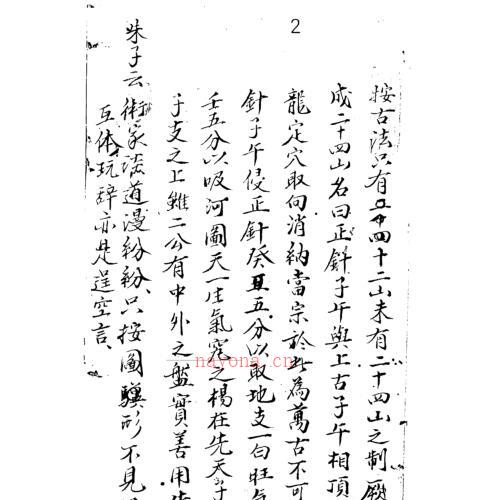 2
按古法只有四十二山未有二十四山之制厥
成二十四山名曰正針子午與上古子午相頂
龍定穴取向消納當宗於此為萬古不可
針子午侵正針癸丑五分以取地支一旬旺氣
壬五分以吸河圖天一生氣究之楊在先天子
子支之上雖二公有中外之盤實善用
朱子云術家談道漫紛紛只按圖驥形不見
互体玩辞亦是逞空言
nayona.cn